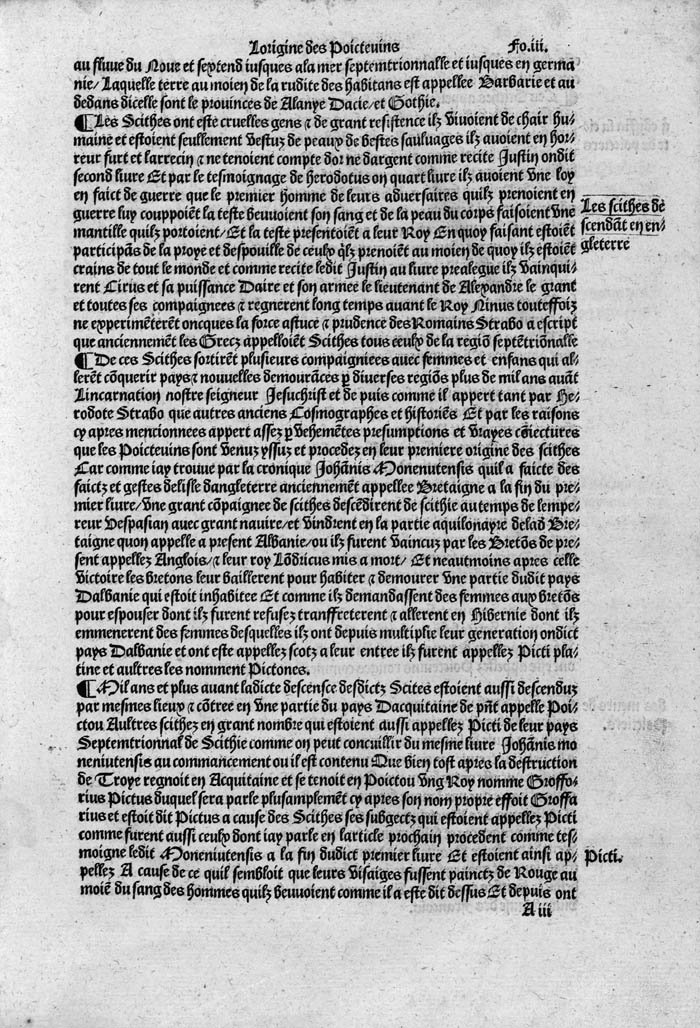 Lorigine des Poicteuins Fo.iii.
au fluue du Noue et septend iusques ala mer septemtrionnalle et iusques en germa
nie/ Laquelle terre au moien de la rudite des habitans est appellee Barbarie et au
dedans dicelle sont le prouinces de Alanye Dacie/ et Gothie.
¶Les Scithes ont este cruelles gens ⁊ de grant resistence ilz viuoient de chair hu⸗
maine et estoient seullement vestuz de peaux de bestes sauluages ilz auoient en hor⸗
reur furt et larrecin ⁊ ne tenoient compte dor ne dargent comme recite Justin ondit
second liure Et par le tesmoignage de herodotus on quart liure ilz auoient vne loy
en faict de guerre que le premier homme de leurs aduersaires quilz prenoient en
guerre luy couppoiẽt la teste beuuoient son sang et de la peau du corps faisoient vne
mantille quilz portoient/ Et la teste presentoiẽt a leur Roy En quoy faisant estoiẽt
participãs de la proye et despouille de ceulx q̃lz prenoiẽt au moien de quoy ilz estoiẽt
crains de tout le monde et comme recite ledit Justin au liure prealegue ilz vainqui⸗
rent Cirus et sa puissance Daire et son armee le lieutenant de Alexandre le grant
et toutes ses compaignees ⁊ regnerent long temps auant le Roy Ninus touteffoiz
ne experimẽterẽt oncques la force astuce ⁊ prudence des Romains Strabo a escript
que anciennemẽt les Grecz appelloiẽt Scithes tous ceulx de la regiõ septẽtriõnalle
¶De ces Scithes sortirẽt plusieurs compaigniees auec femmes et enfans qui al⸗
lerẽt cõquerir pays ⁊ nouuelles demourãces ꝑ diuerses regiõs plus de mil ans auãt
Lincarnation nostre seigneur Jesuchrist et de puis comme il appert tant par He⸗
rodote Strabo que autres anciens Cosmographes et historiẽs Et par les raisons
cy apres mencionnees appert assez ꝑ vehemẽtes presumptions et vrayes cõiectures
que les Poicteuins sont venuz yssuz et procedez en leur premiere origine des scithes
Car comme iay trouue par la cronique Johãnis Monenutensis quil a faicte des
faictz et gestes delisle dangleterre anciennemẽt appellee Bretaigne a la fin du pre⸗
mier liure/ vne grant cõpaignee de scithes descẽdirent de scithie au temps de lempe⸗
reur Vespasian auec grant nauire/ et vindrent en la partie aquilonayre delad̃ Bre⸗
taigne quon appelle a present Albanie/ ou ilz furent vaincuz par les Bretõs de pre⸗
sent appellez Anglois/ ⁊ leur roy Lõdricus mis a mort/ Et neautmoins apres celle
victoire les bretons leur baillerent pour habiter ⁊ demourer vne partie dudit pays
Dalbanie qui estoit inhabitee Et comme ilz demandassent des femmes aux bretõs
pour espouser dont ilz furent refusez transfreterent ⁊ allerent en Hibernie dont ilz
emmenerent des femmes desquelles ilz ont depuis multiplie leur generation ondict
pays Dalbanie et ont este appellez scotz a leur entree ilz furent appellez Picti pla⸗
tine et aultres les nomment Pictones.
¶Mil ans et plus auant ladicte descensce desdictz Scites estoient aussi descenduz
par mesmes lieux ⁊ cõtree en vne partie du pays Dacquitaine de pñt appelle Poi⸗
ctou Aultres scithez en grant nombre qui estoient aussi appellez Picti de leur pays
Septemtrionnal de Scithie comme on peut concuillir du mesme liure Johãnis mo
neniutensis au commancement ou il est contenu Que bien tost apres la destruction
de Troye regnoit en Acquitaine et se tenoit en Poictou vng Roy nomme Groffo⸗
rius Pictus duquel sera parle plusamplemẽt cy apres son nom propre estoit Groffa
rius et estoit dit Pictus a cause des Scithes ses subgectz qui estoient appellez Picti
comme furent aussi ceulx dont iay parle en larticle prochain procedent comme tes⸗
moigne ledit Moneniutensis a la fin dudict premier liure Et estoient ainsi ap⸗
pellez A cause de ce quil sembloit que leurs visaiges fussent painctz de Rouge au
moiẽ du sang des hommes quilz beuuoient comme il a este dit dessus Et depuis ont
A iii
Les scithes de
scendãt en en⸗
gleterre
Picti.